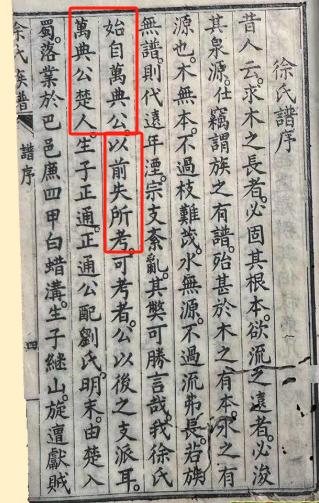 徐氏譜序
昔人云。求木之長者。必固其根本。欲流之遠者。必浚
其泉源。仕竊謂族之有譜。殆甚於木之有本。水之有
源也。木無本。不過枝難茂。水無源。不過流弗長。若族
無譜。則代遠年湮。宗支紊亂。其獘可勝言哉。我徐氏
始自萬典公。以前失所考。可考者。公以後之支派耳。
萬典公楚人。生子正通。正通公配劉氏。明末。由楚入
蜀。落業於巴邑廉四甲白蜡溝。生子継山。旋遭獻賊
徐氏族譜 譜序 四